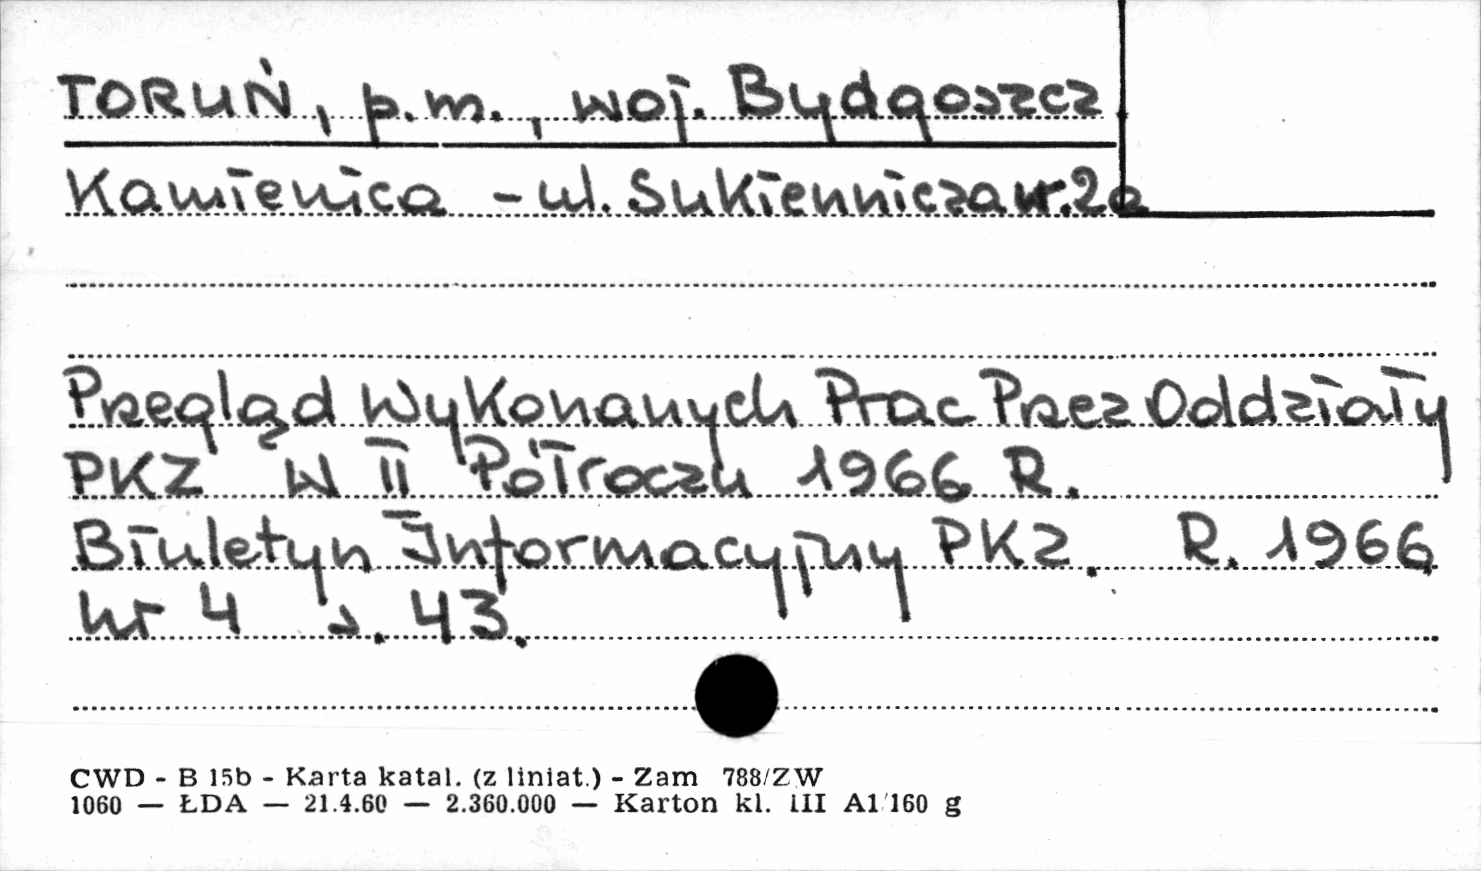 TORUŃ, p.m., woj. Bydgoszcz
Kamienica - ul. Sukiennicza nr. 2a
Przegląd Wykonanych Prac Przez Oddziały
PKZ W II Półroczu 1966 R.
Biuletyn Informacyjny PKZ. R. 1966,
nr 4 s. 43.
CWD - B 15b - Karta katal. (z liniat.) - Zam 788/ZW
1060 — ŁDA — 21.4.60 — 2.360.000 — Karton kl. III A1/160 g